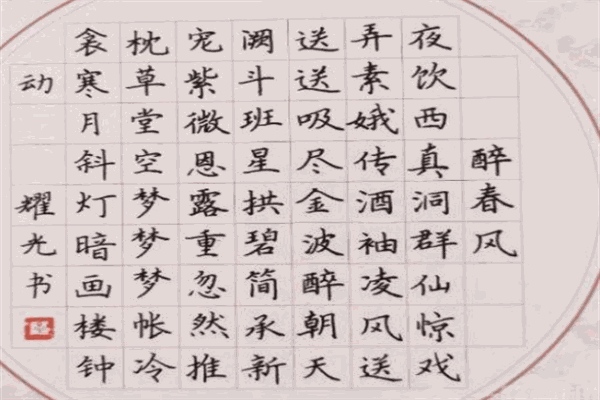 醉春风
夜饮西真洞群仙惊戏
弄素娥传酒袖凌风送
送送吸尽金波醉朝天
阙斗班星拱碧简承新
宠紫微恩露重忽然推
枕草堂空梦梦梦帐冷
衾寒月斜灯暗画楼钟
动 耀光书